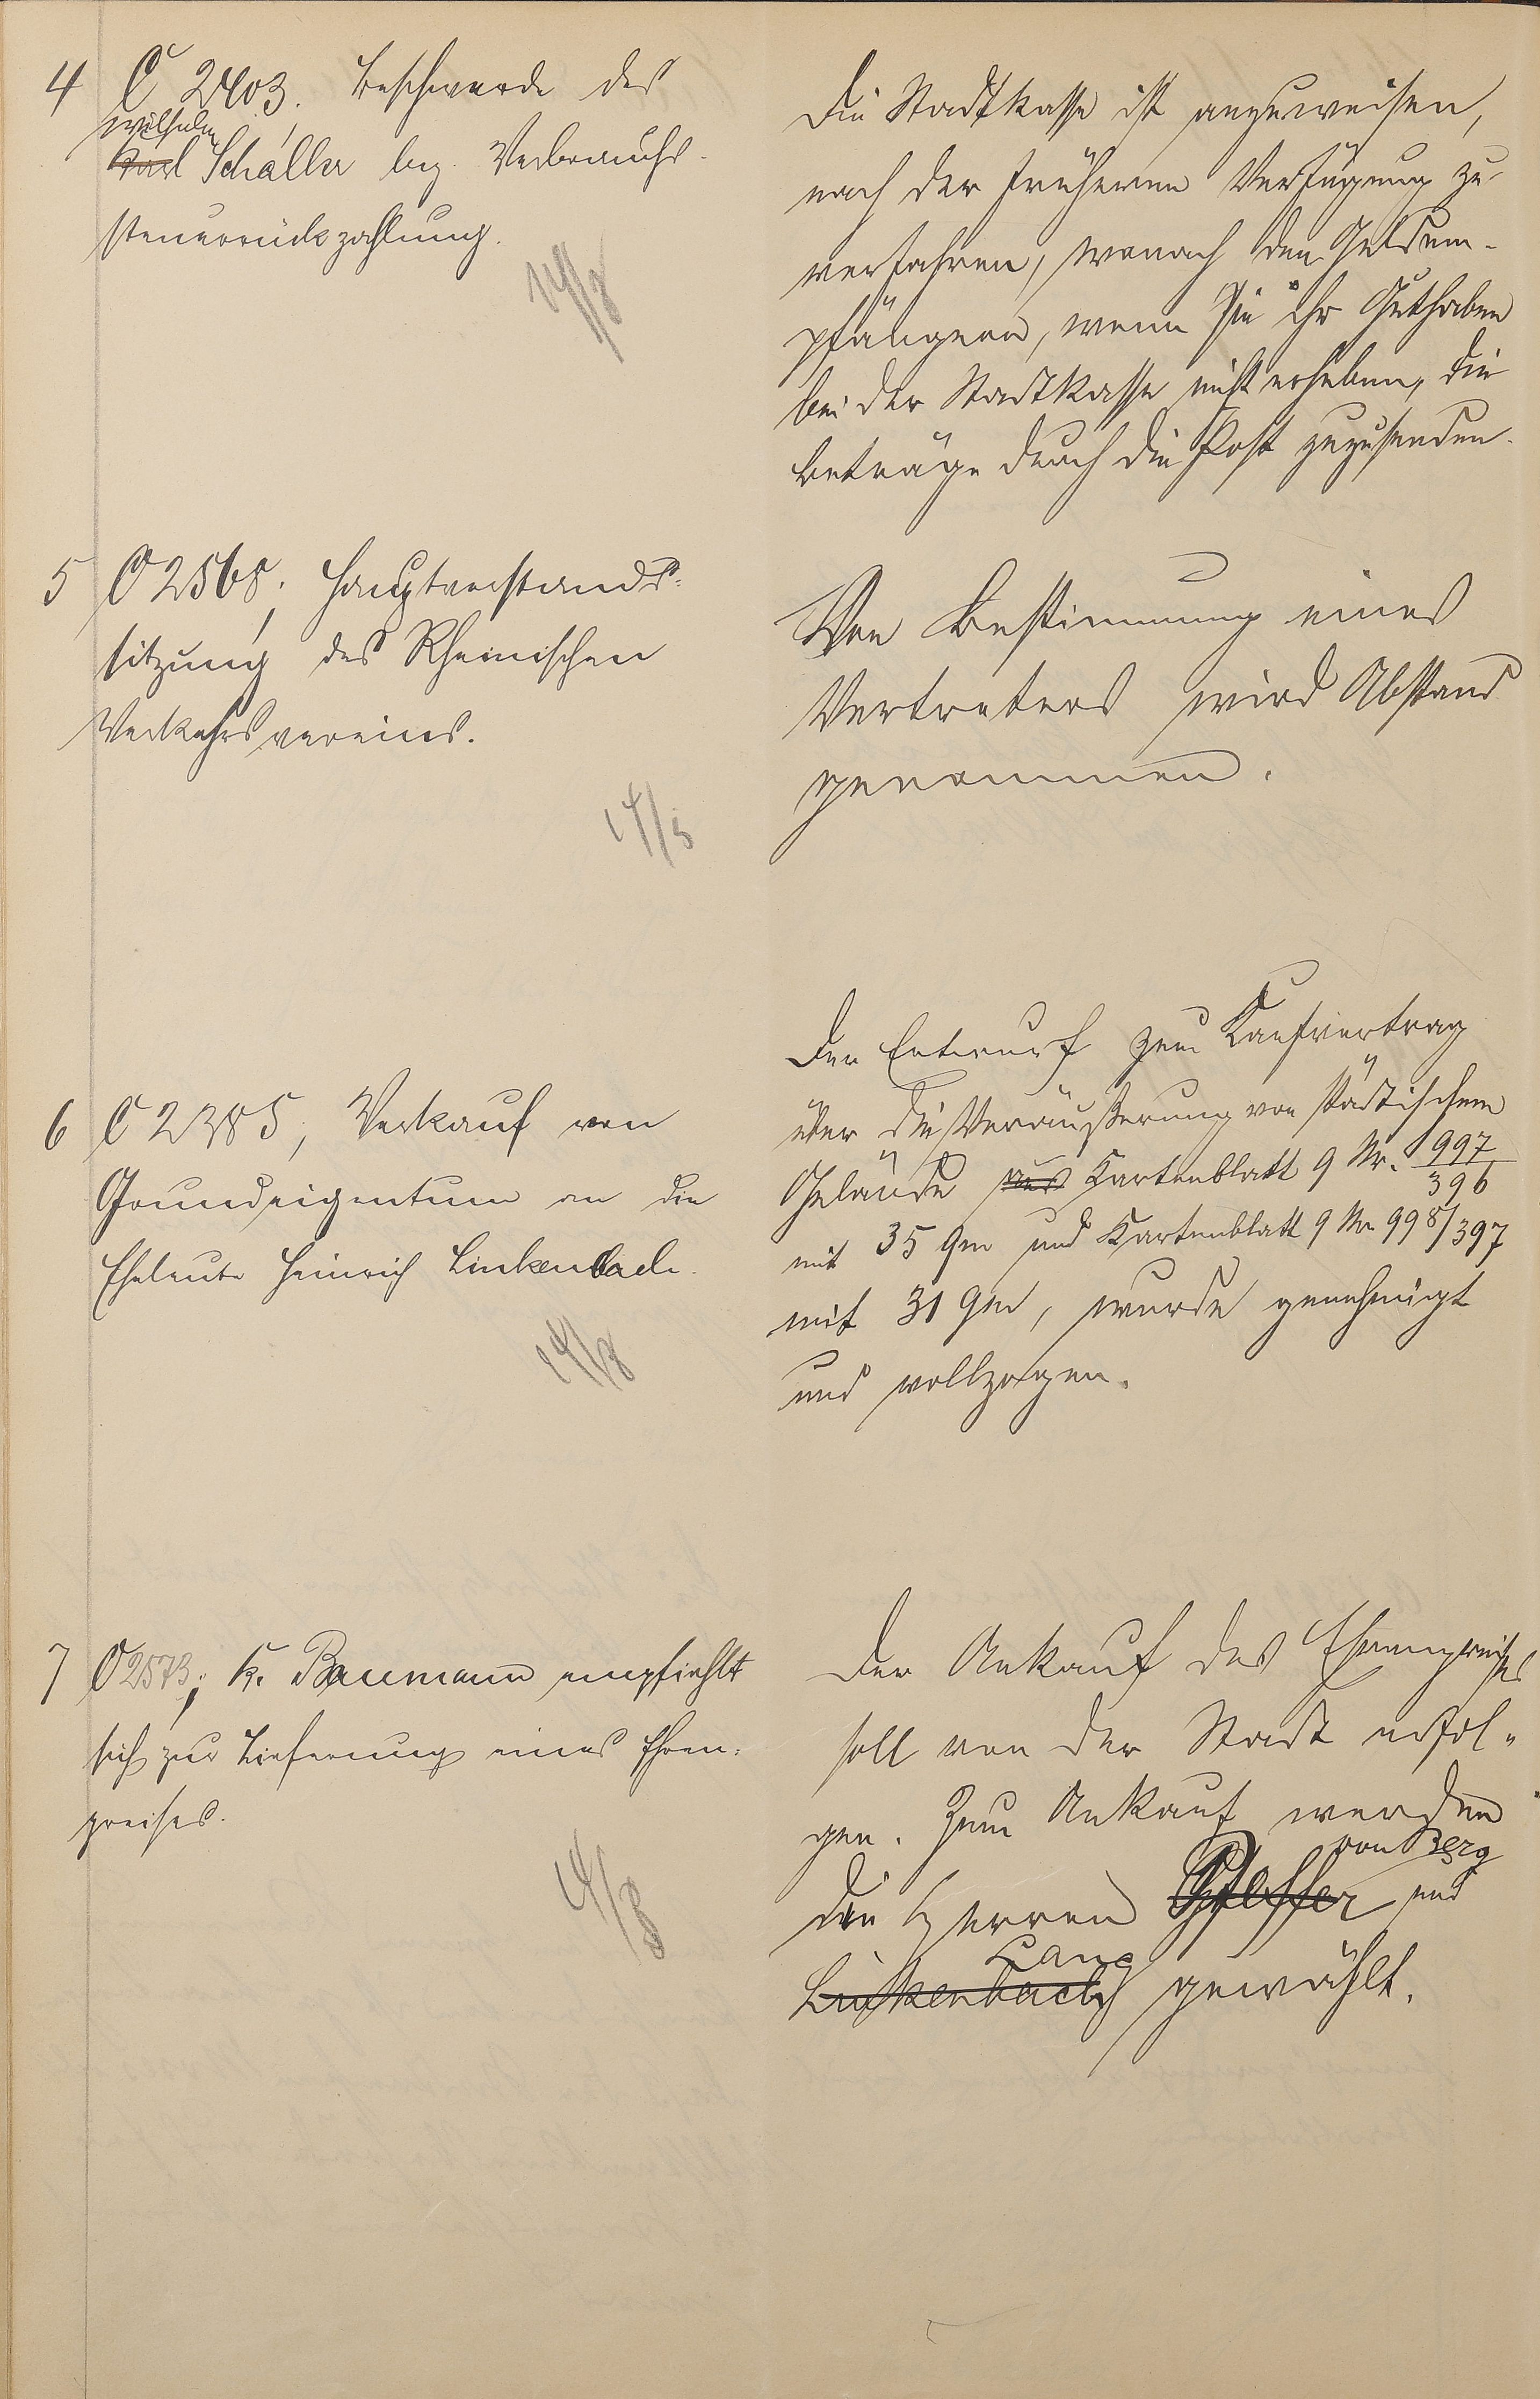 4 C 2403, Beschwerde des
Wilhelm
Karl Schäller bez. Verbrauchs-
steuerrückzahlung.
14/8
Die Stadtkasse ist anzuweisen,
nach der früheren Verfügung zu
verfahren, wonach den Geldem-
pfängern, wenn sie ihr Guthaben
bei der Stadtkasse nicht erheben, die
Beträge durch die Post zuzusenden.
5 C 2568, Hauptvorstands-
sitzung des Rheinischen
Verkehrsvereins.
14/8
Von Bestimmung eines
Vertreters wird Abstand
genommen.
6 C 2385, Verkauf von
Grundeigentum an die
Eheleute Heinrich Linkenbach.
14/8
Der Entwurf zum Kaufvertrag
über die Veräußerung von städtischem
Gelände aus Kartenblatt 9 Nr. 997/396
mit 35 qm und Kartenblatt 9 Nr 998/397
mit 31 qm, wurde genehmigt
und vollzogen.
7 C 2573; K. Baumann empfiehlt
sich zur Lieferung eines Ehren-
preises.
14/8
Der Ankauf des Ehrenpreises
soll von der Stadt erfol-
gen. Zum Ankauf werden
von Berg
die Herren und
Lang
Linkenbach gewählt.